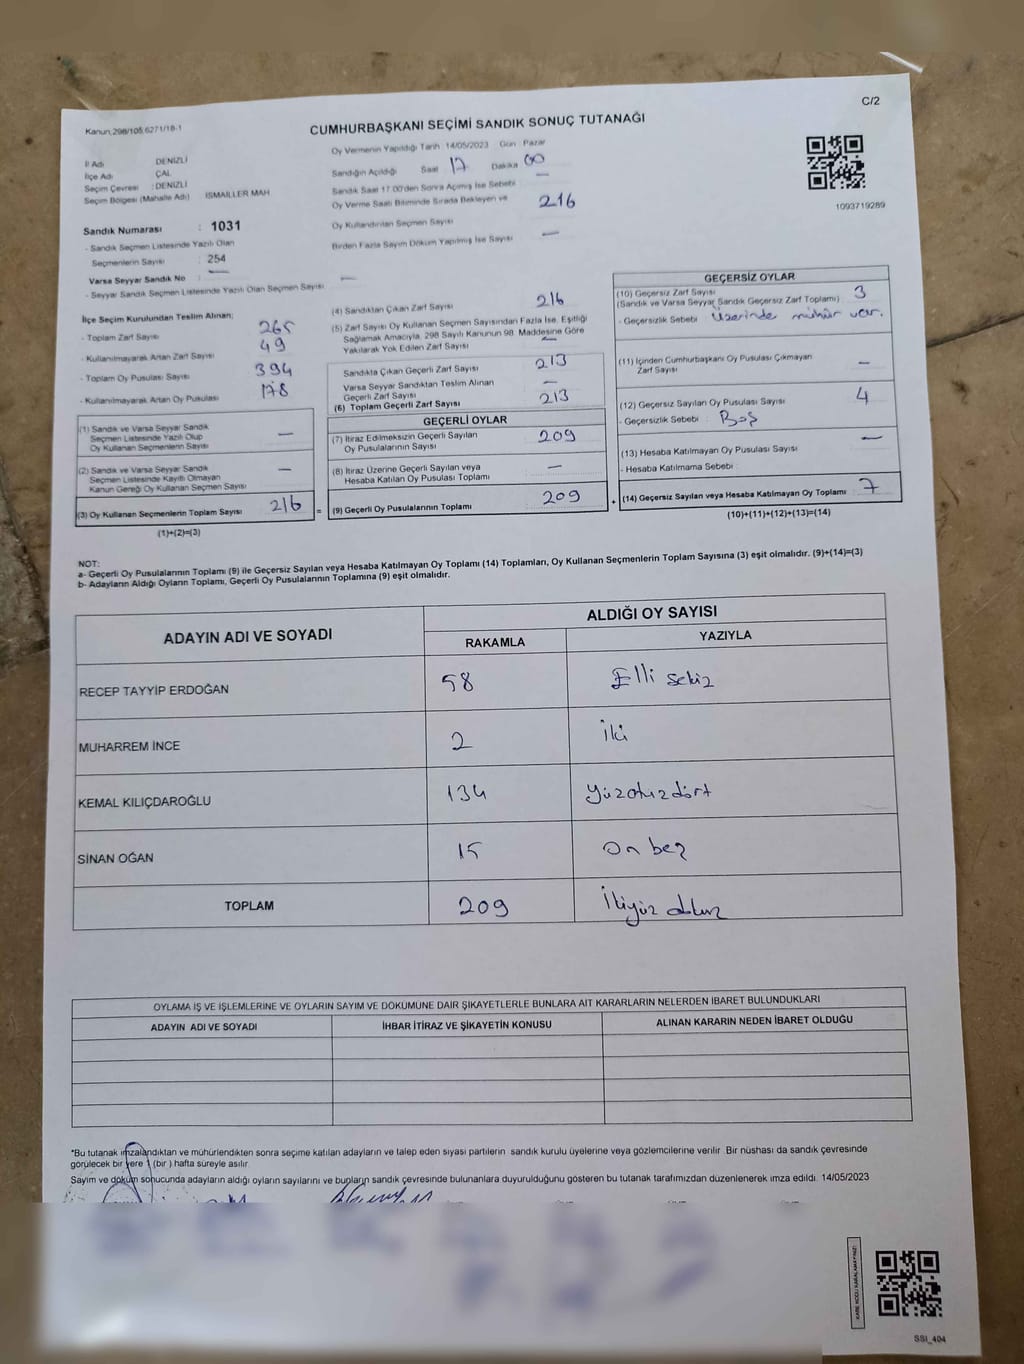 C/2
Kanun,298/105,6271/18-1
CUMHURBAŞKANI SEÇİMİ SANDIK SONUÇ TUTANAĞI
İl Adı DENİZLİ
İlçe Adı ÇAL
Seçim Çevresi : DENİZLİ
Seçim Bölgesi (Mahalle Adı) İSMAİLLER MAH
Sandık Numarası : 1031
- Sandık Seçmen Listesinde Yazılı Olan
Seçmenlerin Sayısı : 254
Varsa Seyyar Sandık No —
- Seyyar Sandık Seçmen Listesinde Yazılı Olan Seçmen Sayısı —
Oy Vermenin Yapıldığı Tarih 14/05/2023 Gün Pazar
Sandığın Açıldığı Saat 17 Dakika 00
Sandık Saat 17.00'den Sonra Açılmış İse Sebebi —
Oy Verme Saati Bitiminde Sırada Bekleyen ve 216
Oy Kullandırılan Seçmen Sayısı
Birden Fazla Sayım Döküm Yapılmış İse Sayısı —
1093719289
İlçe Seçim Kurulundan Teslim Alınan;
- Toplam Zarf Sayısı 265
- Kullanılmayarak Artan Zarf Sayısı 49
- Toplam Oy Pusulası Sayısı 394
- Kullanılmayarak Artan Oy Pusulası 178
(1) Sandık ve Varsa Seyyar Sandık
Seçmen Listesinde Yazılı Olup
Oy Kullanan Seçmenlerin Sayısı —
(2) Sandık ve Varsa Seyyar Sandık
Seçmen Listesinde Kayıtlı Olmayan
Kanun Gereği Oy Kullanan Seçmen Sayısı —
(3) Oy Kullanan Seçmenlerin Toplam Sayısı 216 =
(1)+(2)=(3)
(4) Sandıktan Çıkan Zarf Sayısı 216
(5) Zarf Sayısı Oy Kullanan Seçmen Sayısından Fazla İse, Eşitliği
Sağlamak Amacıyla, 298 Sayılı Kanunun 98. Maddesine Göre
Yakılarak Yok Edilen Zarf Sayısı —
Sandıkta Çıkan Geçerli Zarf Sayısı 213
Varsa Seyyar Sandıktan Teslim Alınan
Geçerli Zarf Sayısı —
(6) Toplam Geçerli Zarf Sayısı 213
GEÇERLİ OYLAR
(7) İtiraz Edilmeksizin Geçerli Sayılan
Oy Pusulalarının Sayısı 209
(8) İtiraz Üzerine Geçerli Sayılan veya
Hesaba Katılan Oy Pusulası Toplamı —
(9) Geçerli Oy Pusulalarının Toplamı 209 +
GEÇERSİZ OYLAR
(10) Geçersiz Zarf Sayısı 3
(Sandık ve Varsa Seyyar Sandık Geçersiz Zarf Toplamı)
- Geçersizlik Sebebi : Üzerinde mühür var.
(11) İçinden Cumhurbaşkanı Oy Pusulası Çıkmayan
Zarf Sayısı —
(12) Geçersiz Sayılan Oy Pusulası Sayısı 4
- Geçersizlik Sebebi : Boş
(13) Hesaba Katılmayan Oy Pusulası Sayısı —
- Hesaba Katılmama Sebebi :
(14) Geçersiz Sayılan veya Hesaba Katılmayan Oy Toplamı 7
(10)+(11)+(12)+(13)=(14)
NOT:
a- Geçerli Oy Pusulalarının Toplamı (9) ile Geçersiz Sayılan veya Hesaba Katılmayan Oy Toplamı (14) Toplamları, Oy Kullanan Seçmenlerin Toplam Sayısına (3) eşit olmalıdır. (9)+(14)=(3)
b- Adayların Aldığı Oyların Toplamı, Geçerli Oy Pusulalarının Toplamına (9) eşit olmalıdır.
ADAYIN ADI VE SOYADI ALDIĞI OY SAYISI
RAKAMLA YAZIYLA
RECEP TAYYİP ERDOĞAN 58 Elli sekiz
MUHARREM İNCE 2 İki
KEMAL KILIÇDAROĞLU 134 Yüzotuzdört
SİNAN OĞAN 15 On beş
TOPLAM 209 İkiyüz dokuz
OYLAMA İŞ VE İŞLEMLERİNE VE OYLARIN SAYIM VE DÖKÜMÜNE DAİR ŞİKAYETLERLE BUNLARA AİT KARARLARIN NELERDEN İBARET BULUNDUKLARI
ADAYIN ADI VE SOYADI İHBAR İTİRAZ VE ŞİKAYETİN KONUSU ALINAN KARARIN NEDEN İBARET OLDUĞU
*Bu tutanak imzalandıktan ve mühürlendikten sonra seçime katılan adayların ve talep eden siyasi partilerin sandık kurulu üyelerine veya gözlemcilerine verilir. Bir nüshası da sandık çevresinde
görülecek bir yere 1 (bir ) hafta süreyle asılır.
Sayım ve döküm sonucunda adayların aldığı oyların sayılarını ve bunların sandık çevresinde bulunanlara duyurulduğunu gösteren bu tutanak tarafımızdan düzenlenerek imza edildi. 14/05/2023
SSI_404